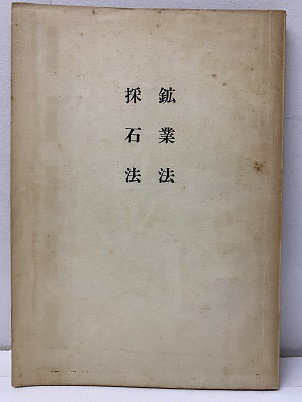 鉱業法
採石法